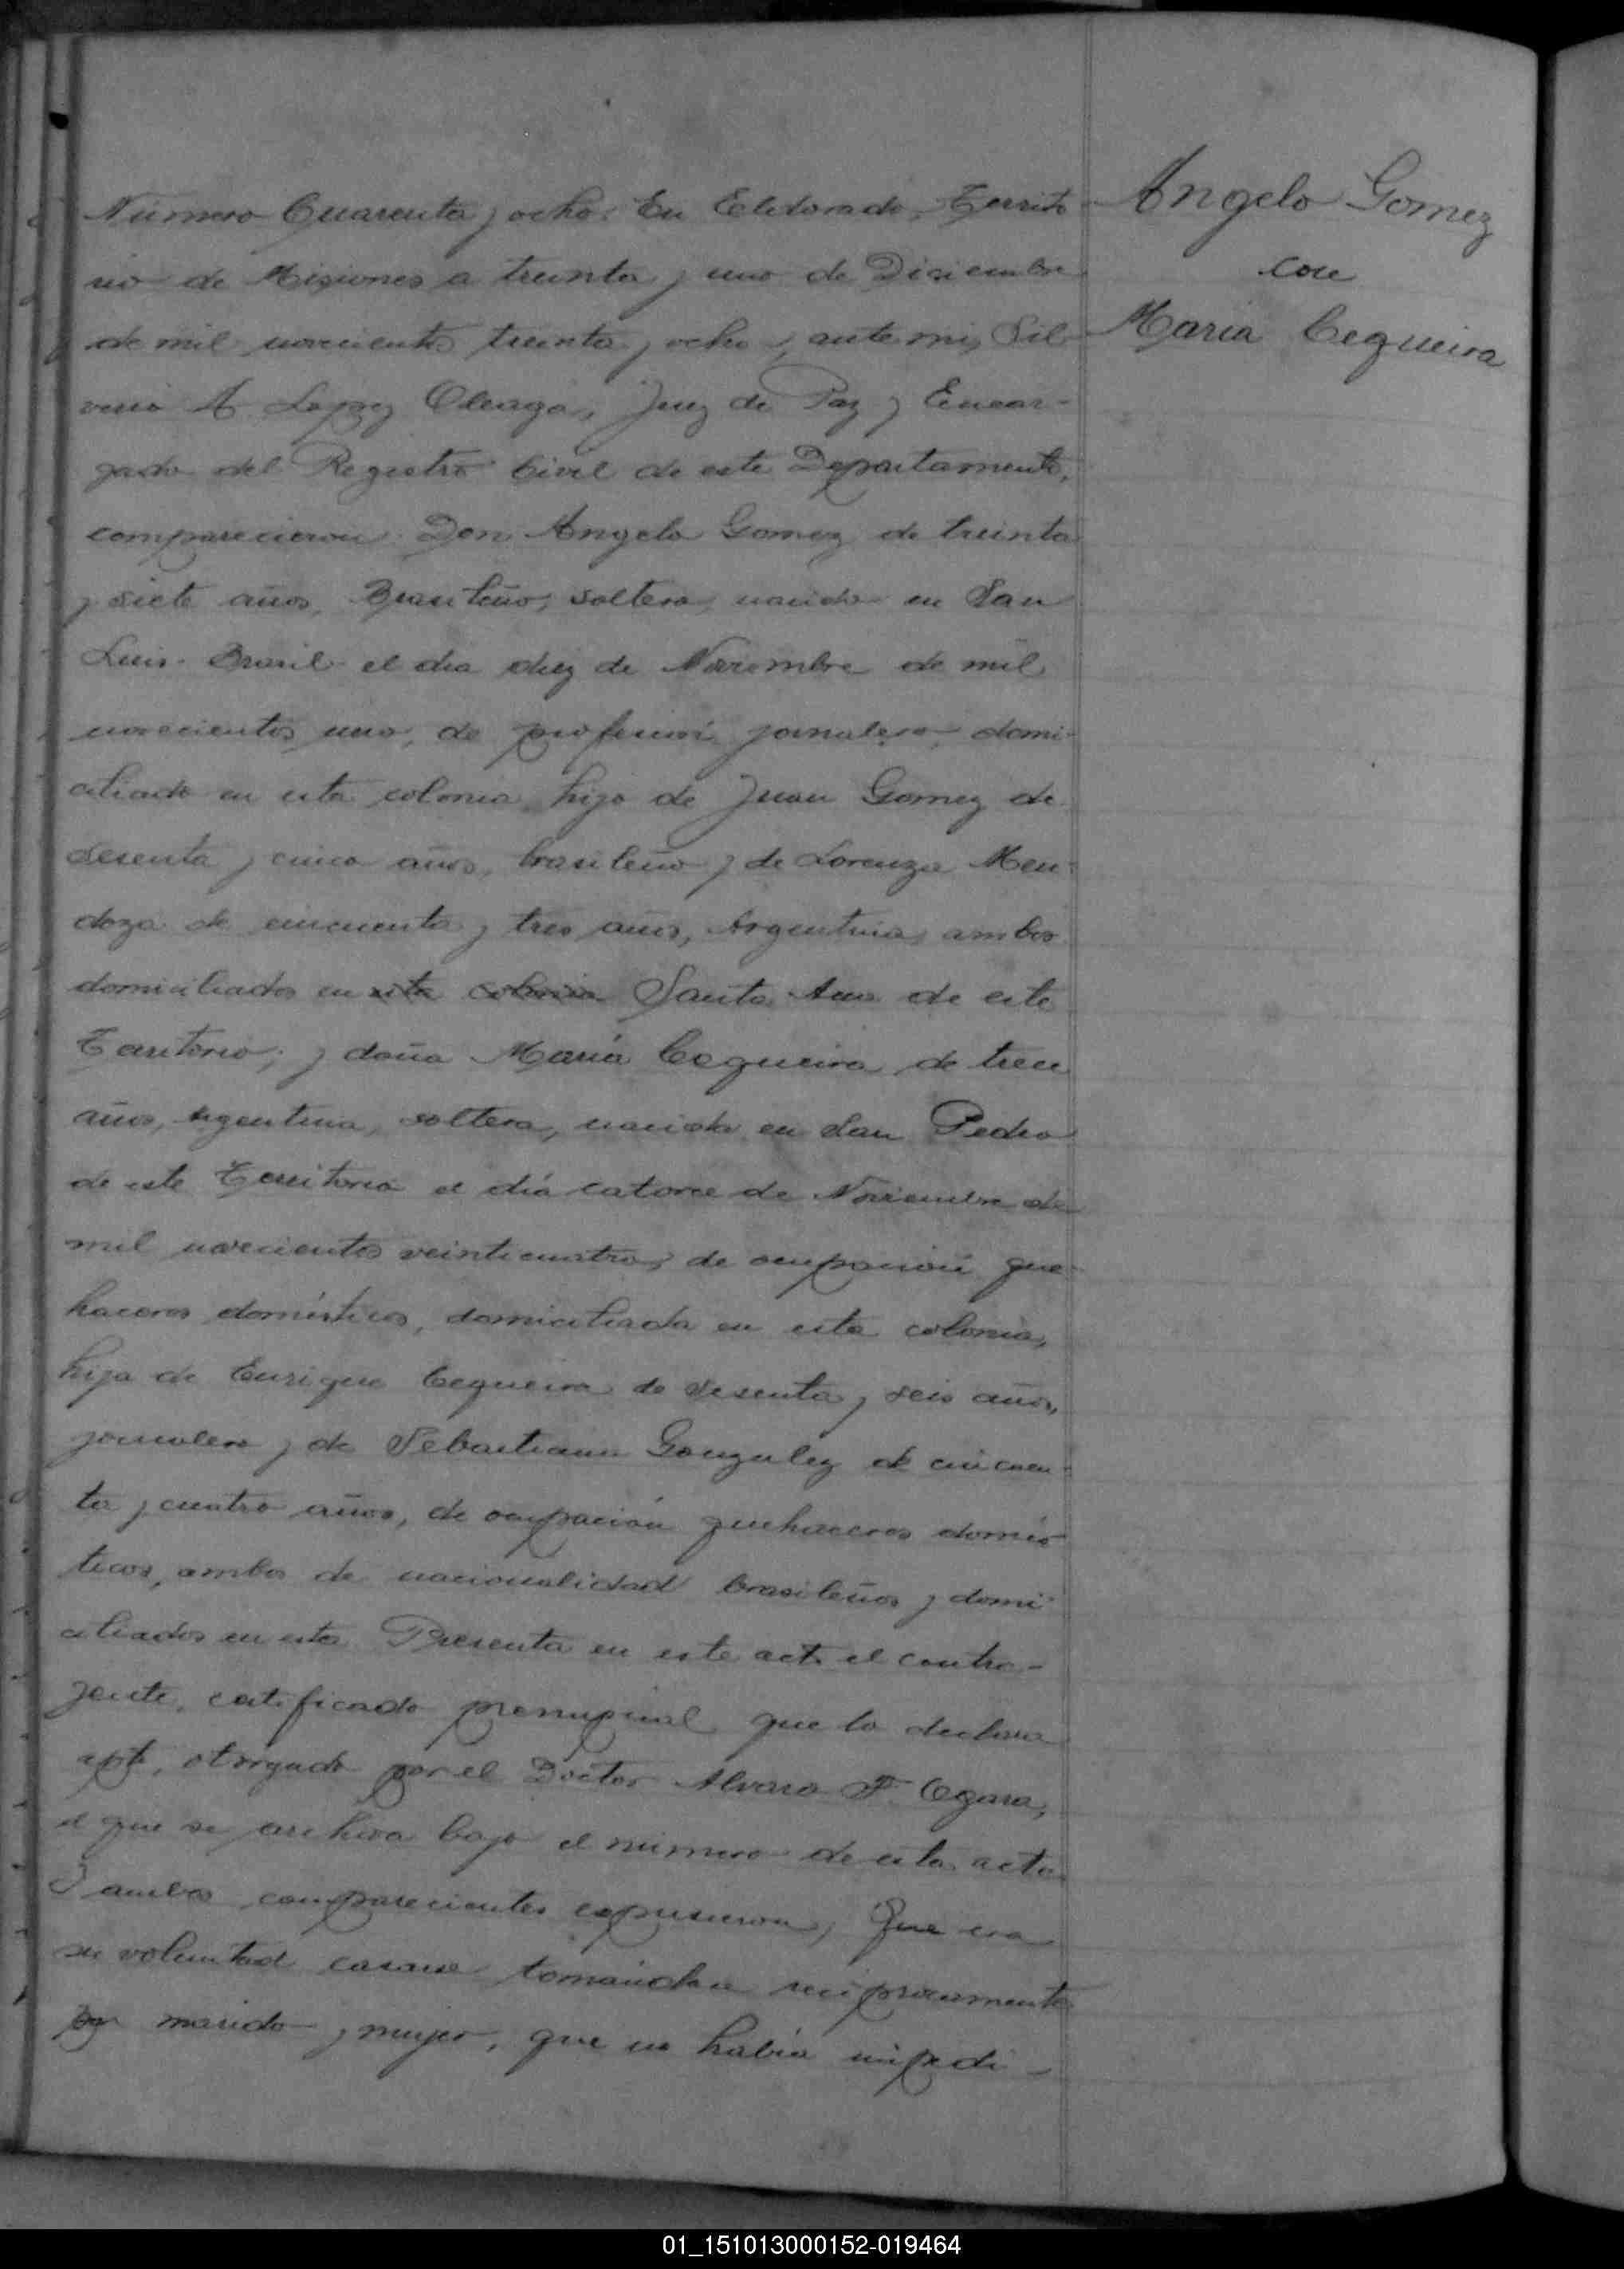 Número Cuarenta y ocho: En Eldorado, Territo
rio de Misiones a treinta y uno de Diciembre
de mil novecientos treinta y ocho, ante mi, Sil-
verio A Lopez Oleaga, Juez de Paz y Encar-
gado del Registro Civil de este Departamento,
comparecieron: Don Angelo Gomez de treinta
y siete años, Brasileño, soltero, nacido en San
Luis-Brasil el dia diez de Noviembre de mil
novecientos uno, de profesión jornalero, domi-
ciliado en esta colonia, hijo de Juan Gomez de
sesenta y cinco años, brasileño y de Lorenza Men-
doza de cincuenta y tres años, Argentina, ambos
domiciliados en esta colonia Santa Ana de este
Territorio; y doña María Cequeira de trece
años, Argentina, soltera, nacida en San Pedro
de este Territorio el día catorce de Noviembre de
mil novecientos veinticuatro, de ocupación que-
haceres domésticos, domiciliada en esta colonia,
hija de Enrique Cequeira de sesenta y seis años,
jornalero y de Sebastiana Gonzalez de cincuen-
ta y cuatro años, de ocupación quehaceres domés-
ticos, ambos de nacionalidad brasileños y domi-
ciliados en esta. Presenta en este acto el contra-
yente, certificado prenupcial que lo declara
apto, otorgado por el Doctor Alvaro F. Ogara,
el que se archiva bajo el número de esta acta.
Y ambos comparecientes expusieron, Que era
su voluntad casarse tomándose recíprocamente
por marido y mujer, que no había impedi-
Angelo Gomez
con
Maria Cequeira
01_151013000152-019464